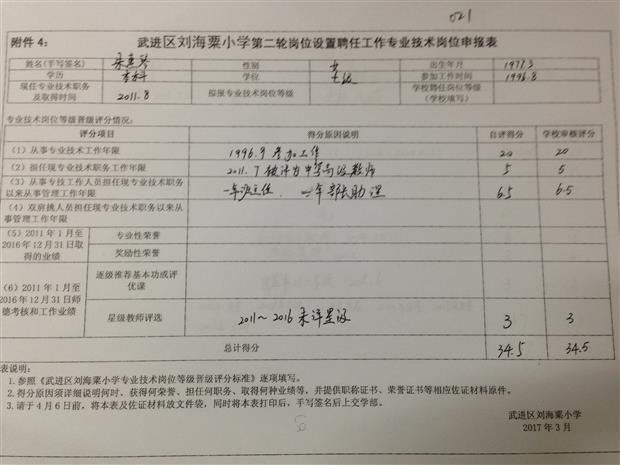 021
附件4： 武进区刘海粟小学第二轮岗位设置聘任工作专业技术岗位申报表
姓名(手写签名) 性别 女 出生年月 1977.3
学历 本科 学位 参加工作时间 1996.8
现任专业技术职务及取得时间 2011.8 拟报专业技术岗位等级 七级 学校聘任岗位等级(学校填写)
专业技术岗位等级晋级评分情况：
评分项目 得分原因说明 自评得分 学校审核评分
（1）从事专业技术工作年限 1996.9 参加工作 20 20
（2）担任现专业技术职务工作年限 2011.7 被评为中学高级教师 5 5
（3）从事专技工作人员担任现专业技术职务以来从事管理工作年限 一年班主任 二年部长助理 6.5 6.5
（4）双肩挑人员担任现专业技术职务以来从事管理工作年限
（5）2011年1月至2016年12月31日取得的业绩 专业性荣誉
奖励性荣誉
（6）2011年1月至2016年12月31日师德考核和工作业绩 逐级推荐基本功或评优课
星级教师评选 2011~2016 未评星级 3 3
总计得分 34.5 34.5
表说明：
1.参照《武进区刘海粟小学专业技术岗位等级晋级评分标准》逐项填写。
2.得分原因须详细说明何时、获得何荣誉、担任何职务、取得何种业绩等，并提供职称证书、荣誉证书等相应佐证材料原件。
3.请于4月6日前，将本表及佐证材料放文件袋，同时将本表打印后，手写签名后上交学部。
武进区刘海粟小学
2017年3月